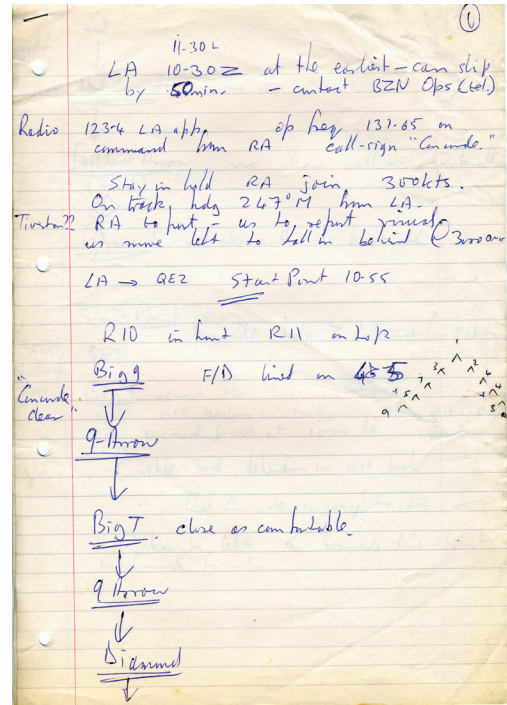 ①
11-30 L
LA 10-30 Z at the earliest – can slip
by 50 min. – contact BZN Ops (tel.)
Radio 123·4 LA app, op freq 137·65 on
command from RA call-sign "Concorde."
Stay in hold RA join 300kts.
On track, hdg 247°M from LA.
RA to port – us to report visual
us move left to fall in behind @ 3000
LA → QE2 Start Point 10-55
R10 in front R11 on top
Big 9 F/D lined on 5
"Concorde clear"
9-Arrow
Big T. close as comfortable.
9 Arrow
Diamond